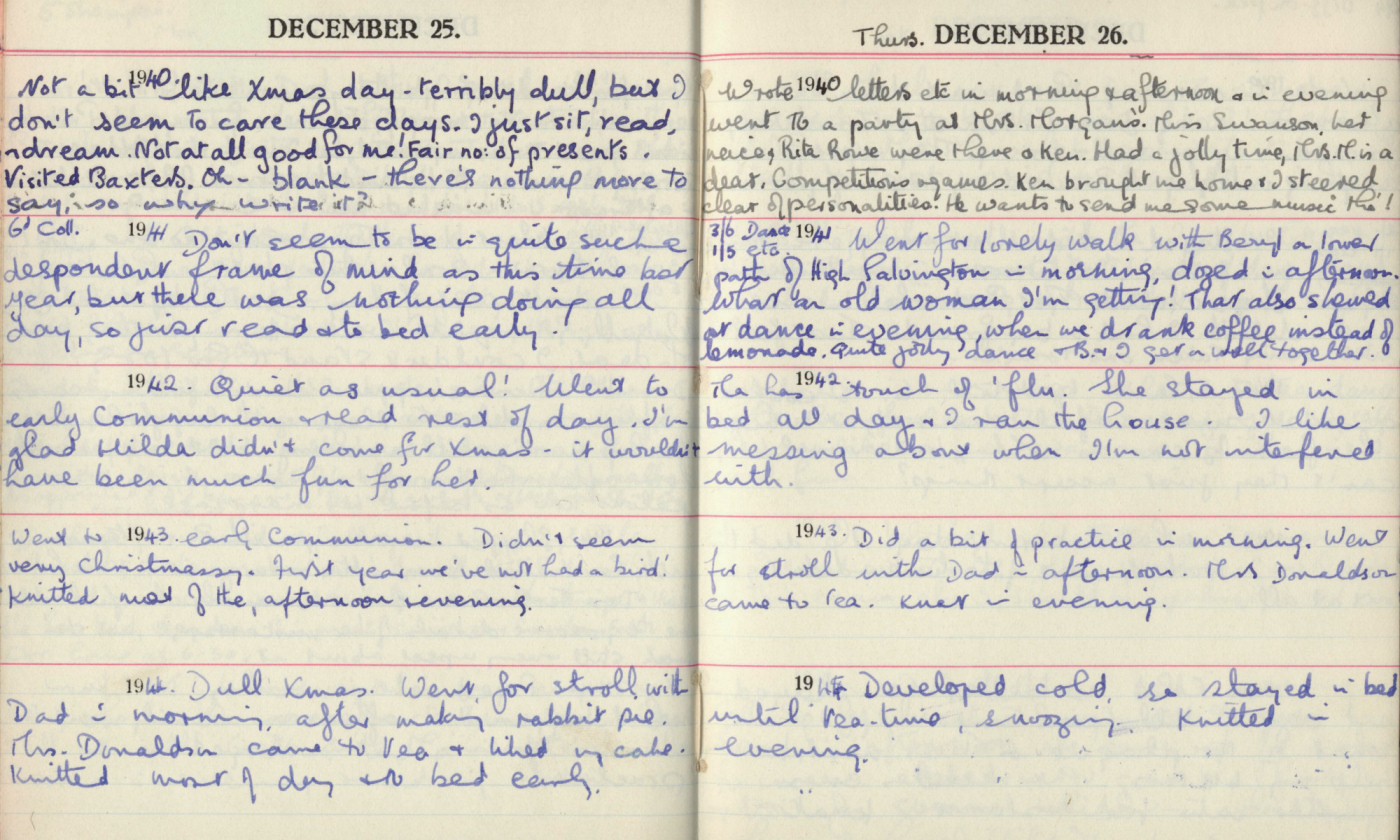 DECEMBER 25.
1940.
Not a bit like Xmas day - terribly dull, but I
don't seem to care these days. I just sit, read,
+ dream. Not at all good for me! Fair no: of presents.
Visited Baxters. Oh - blank - there's nothing more to
say, so why write it?
6d Coll.
1941
Don't seem to be in quite such a
despondent frame of mind as this time last
year, but there was nothing doing all
day, so just read + to bed early.
1942. Quiet as usual! Went to
early Communion + read rest of day. I'm
glad Hilda didn't come for Xmas - it wouldn't
have been much fun for her.
Went to 1943. early Communion. Didn't seem
very Christmassy. First year we've not had a bird!
Knitted most of the afternoon + evening.
1944. Dull Xmas. Went for stroll with
Dad in morning, after making rabbit pie.
Mrs. Donaldson came to tea + liked my cake.
Knitted most of day + to bed early.
Thurs. DECEMBER 26.
Wrote 1940 letters etc in morning + afternoon + in evening
went to a party at Mrs. Morgans. Miss Swanson, her
neice, Rita Rowe were there + Ken. Had a jolly time, Mrs. M. is a
dear. Competitions + games. Ken brought me home + I steered
clear of personalities! He wants to send me some music tho'!
3/6 Dance 1941 Went for lovely walk with Beryl a lower
1/5 etc.
path of High Salvington in morning, dozed in afternoon.
What an old woman I'm getting! That also showed
at dance in evening, when we drank coffee instead of
lemonade. Quite jolly dance + B. + I get on well together.
1942.
Ma has touch of 'flu. She stayed in
bed all day + I ran the house. I like
messing about when I'm not interfered
with.
1943. Did a bit of practice in morning. Went
for stroll with Dad in afternoon. Mrs Donaldson
came to tea. Knit in evening.
1944 Developed cold so stayed in bed
until tea-time, snoozing. Knitted in
evening.